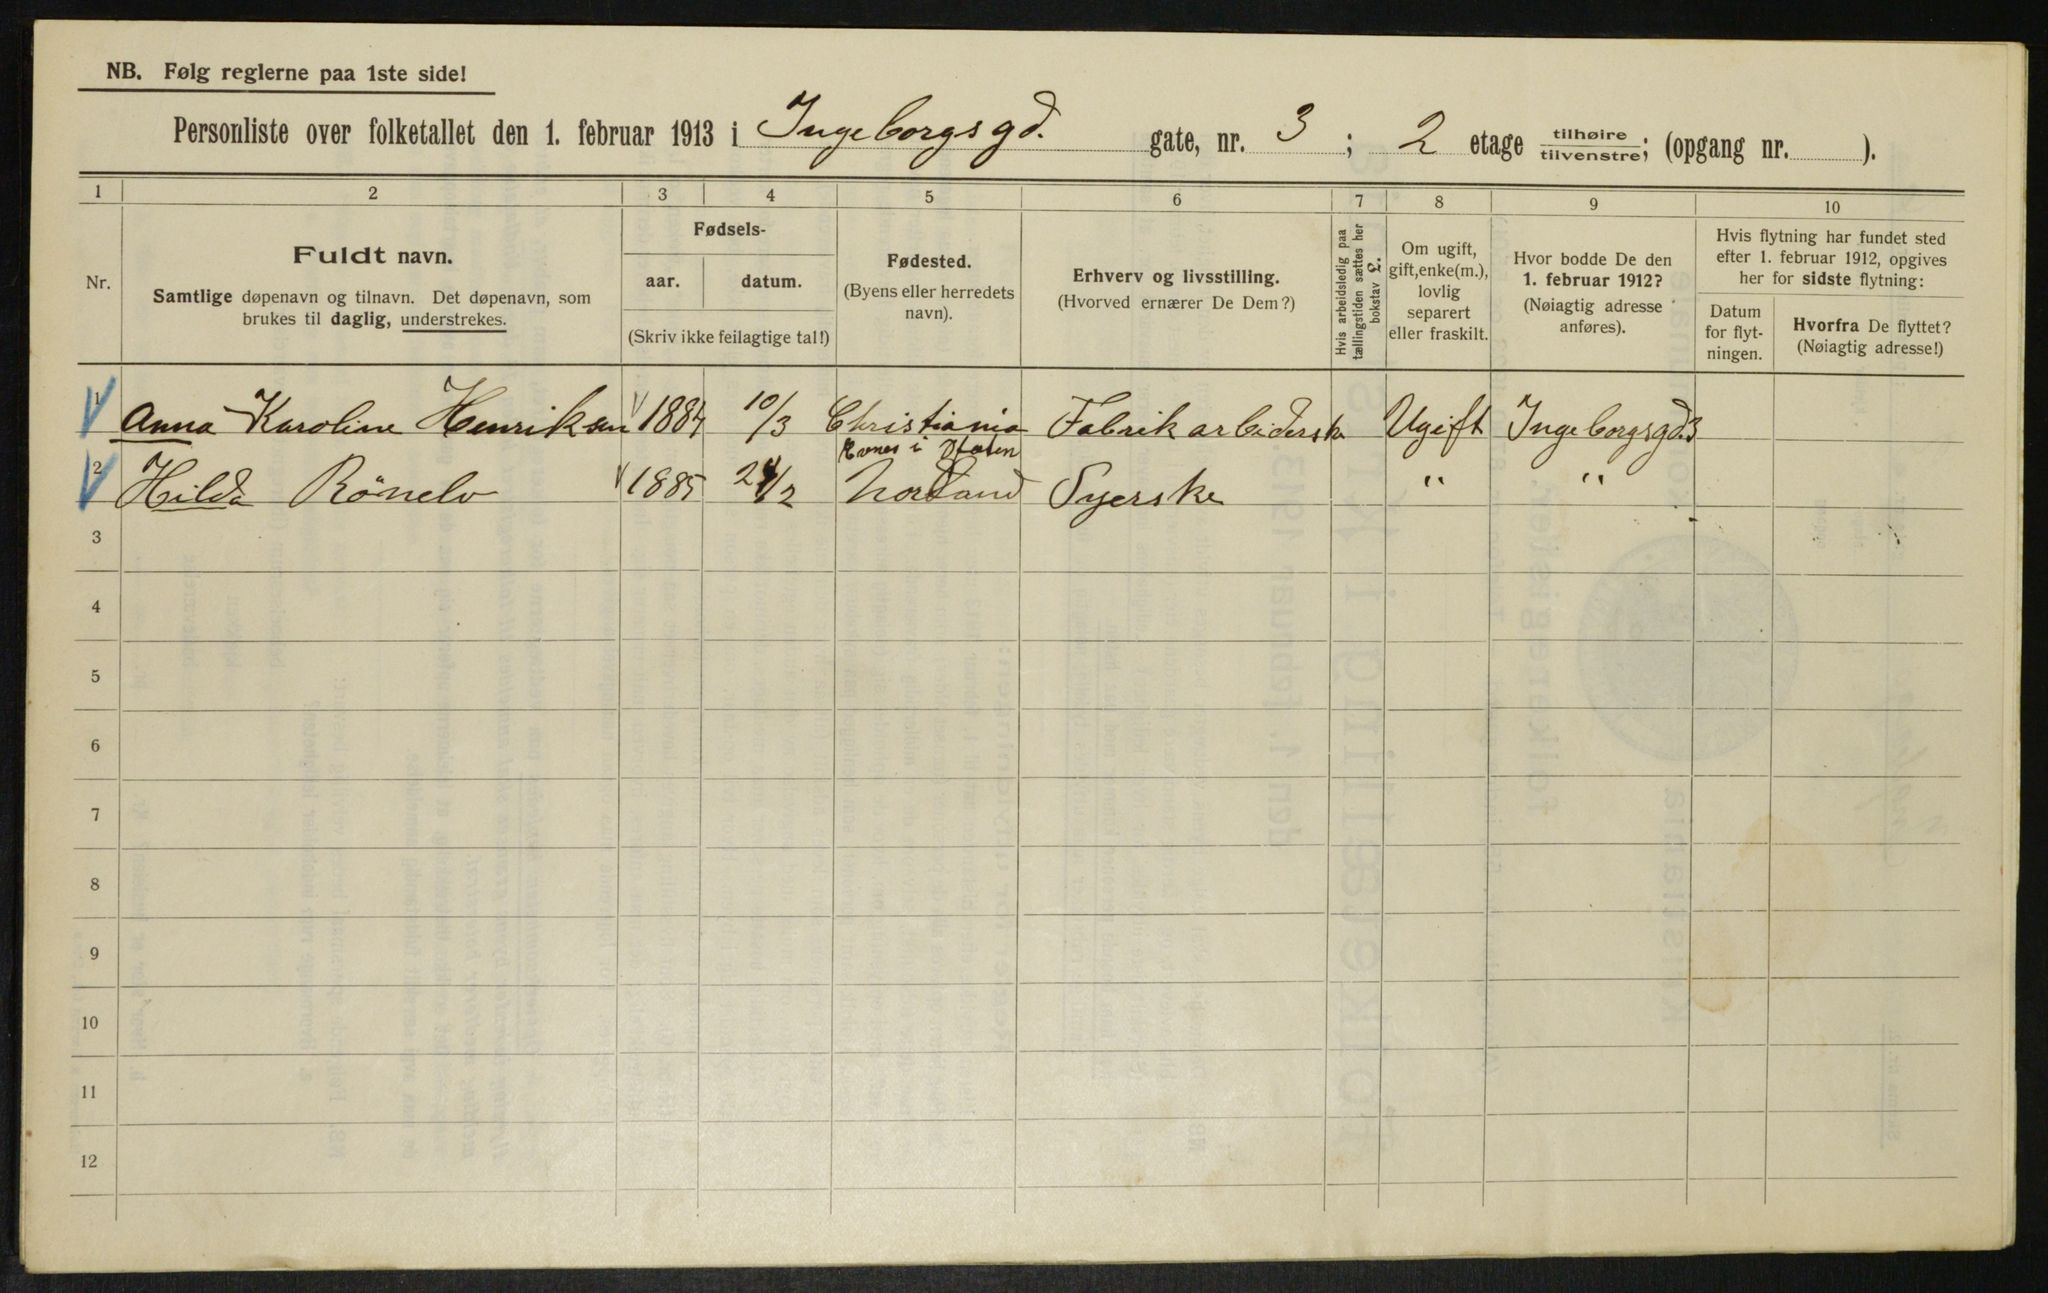 NB. Følg reglerne paa 1ste side!
Personliste over folketallet den 1. februar 1913 i Ingeborgsgd. gate, nr. 3 ; 2 etage tilhøire / tilvenstre; (opgang nr. ).
1 2 3 4 5 6 7 8 9 10
Nr.
Fuldt navn.
Samtlige døpenavn og tilnavn. Det døpenavn, som
brukes til daglig, understrekes.
Fødsels-
aar. datum.
(Skriv ikke feilagtige tal!)
Fødested.
(Byens eller herredets
navn).
Erhverv og livsstilling.
(Hvorved ernærer De Dem?)
Hvis arbeidsledig paa
tællingstiden sættes her
bokstav L.
Om ugift,
gift, enke(m.),
lovlig
separert
eller fraskilt.
Hvor bodde De den
1. februar 1912?
(Nøiagtig adresse
anføres).
Hvis flytning har fundet sted
efter 1. februar 1912, opgives
her for sidste flytning:
Datum
for flyt-
ningen.
Hvorfra De flyttet?
(Nøiagtig adresse!)
1 Anna Karoline Henriksen 1884 10/3 Christiania Fabrikarbiderske Ugift Ingeborgsgd. 3
Evenes i
2 Hilda Rönelv 1885 /2 Nordland Syerske " "
3
4
5
6
7
8
9
10
11
12